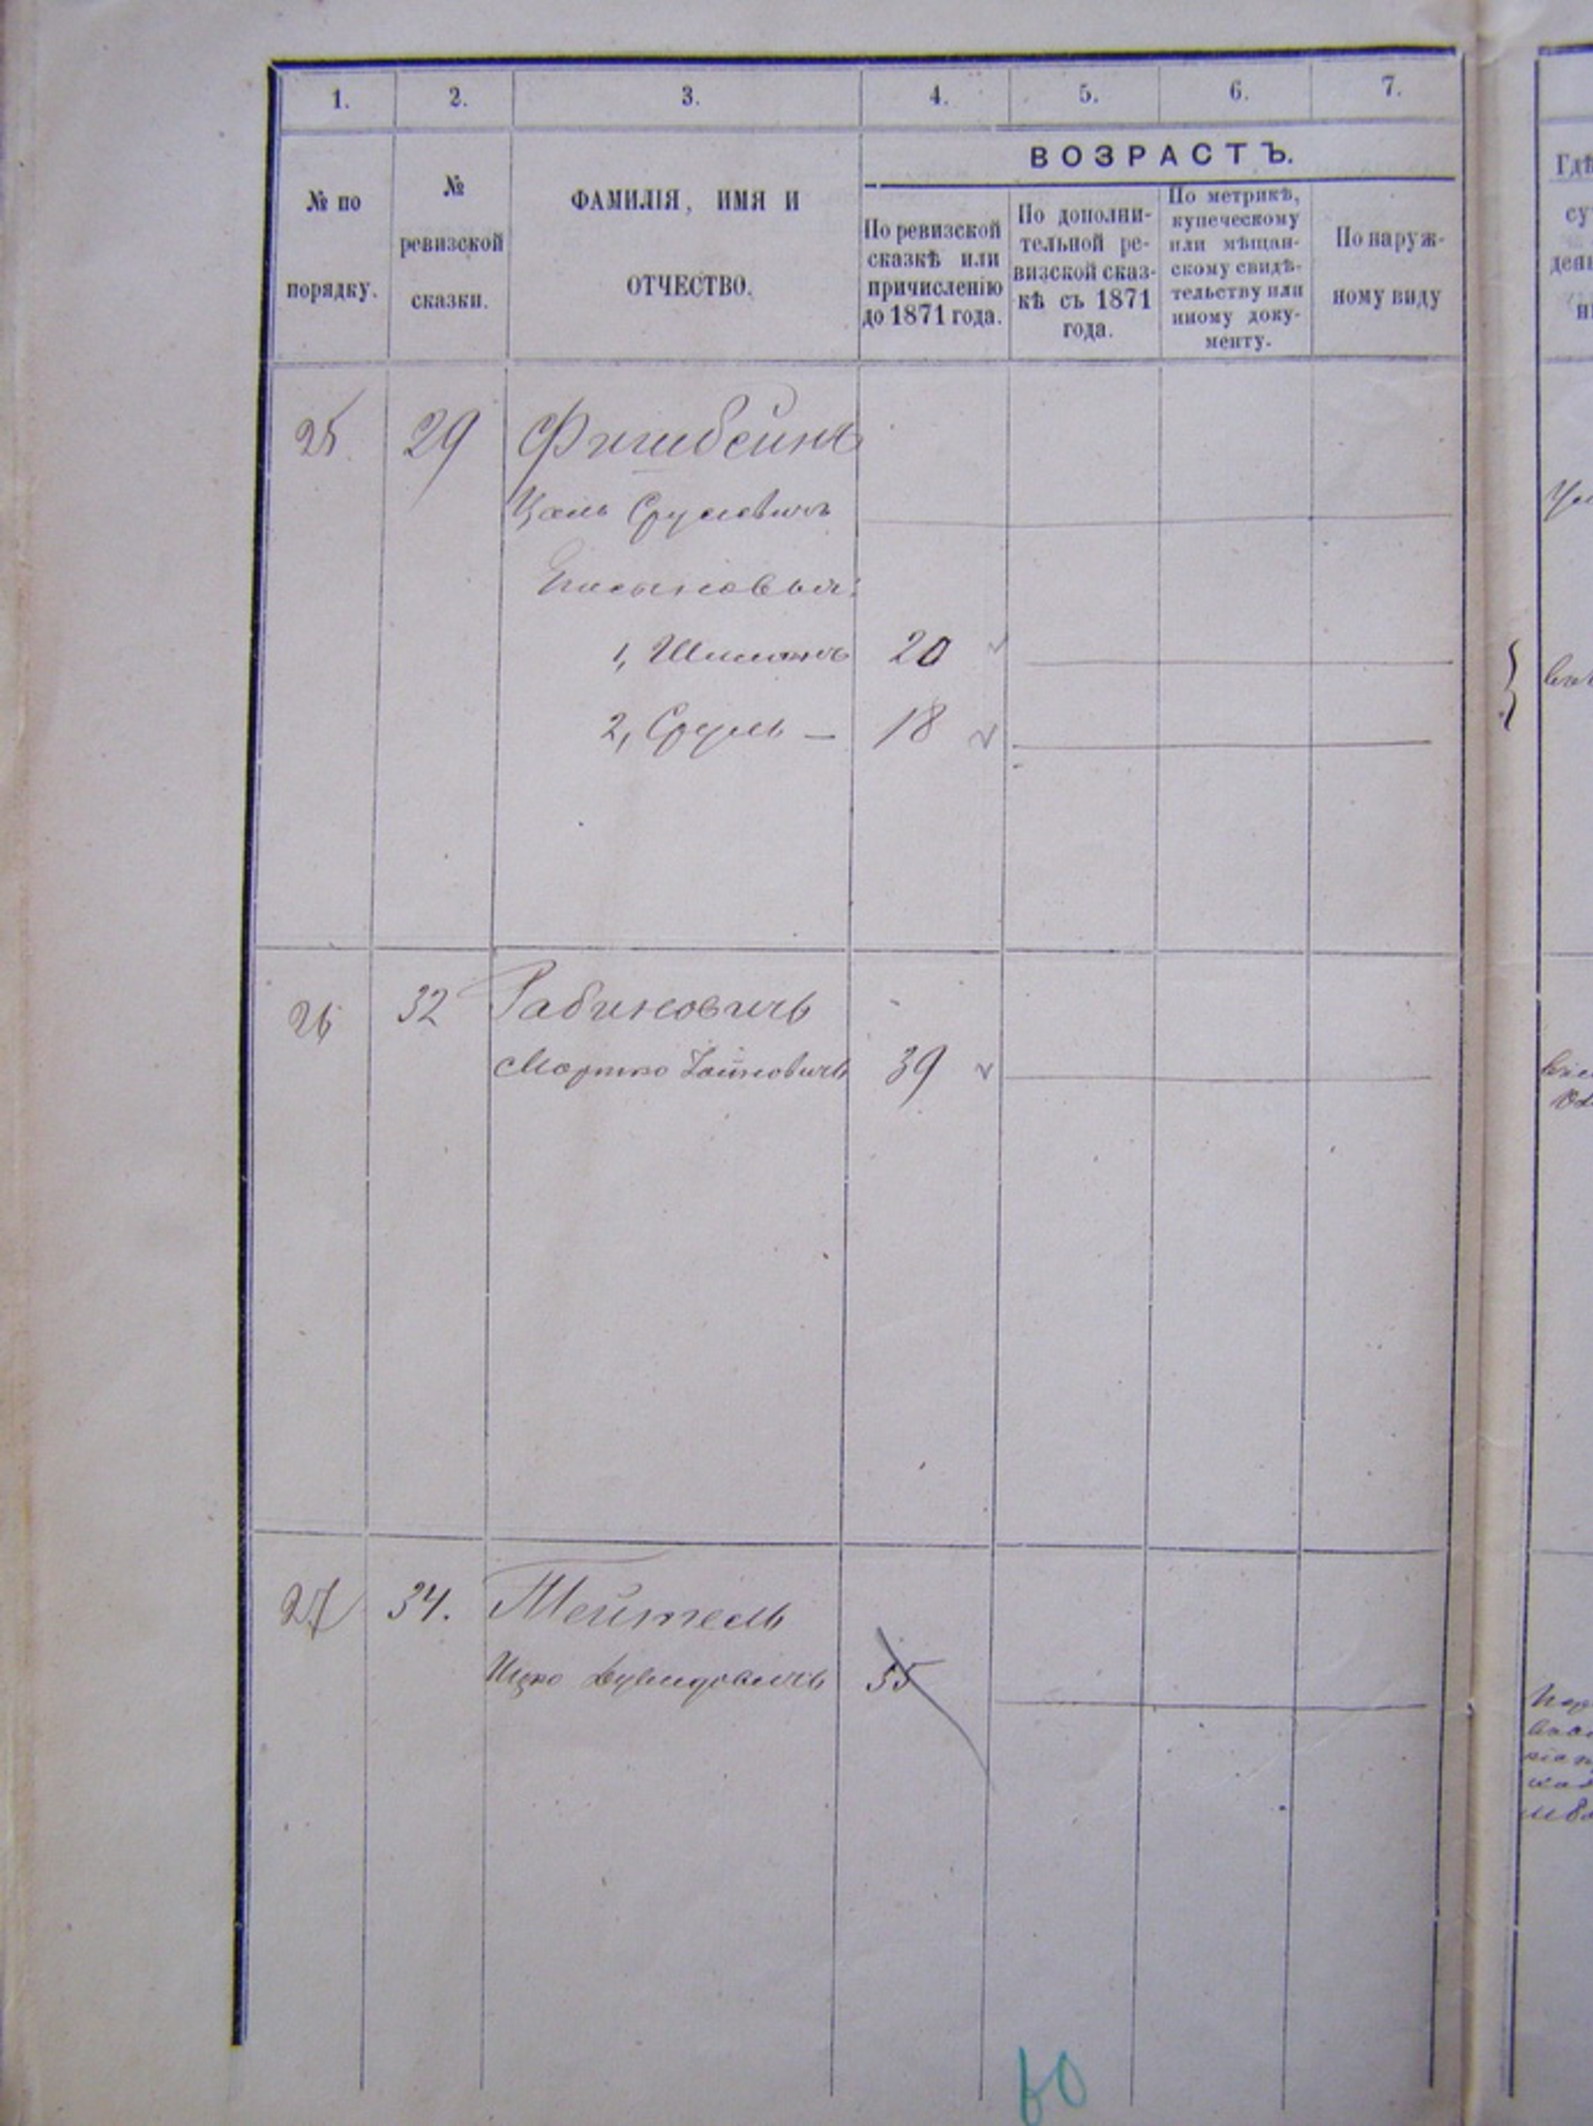 1. 2. 3. 4. 5. 6. 7.
ВОЗРАСТЪ.
№ по
порядку.
№
ревизской
сказки.
ФАМИЛІЯ, ИМЯ И
ОТЧЕСТВО.
По ревизской
сказкѣ или
причисленію
до 1871 года.
По дополни-
тельной ре-
визской сказ-
кѣ съ 1871
года.
По метрикѣ,
купеческому
или мѣщан-
скому свидѣ-
тельству или
иному доку-
менту.
По наруж-
ному виду
25 29 Фишбейнъ
Цаль Срулевичъ
Его сыновья:
1, Шимонъ 20
2, Сруль — 18
26 32 Рабиновичъ
Мортко 39
27 34. Тейтель
Ицко Дувидовичъ 55
60